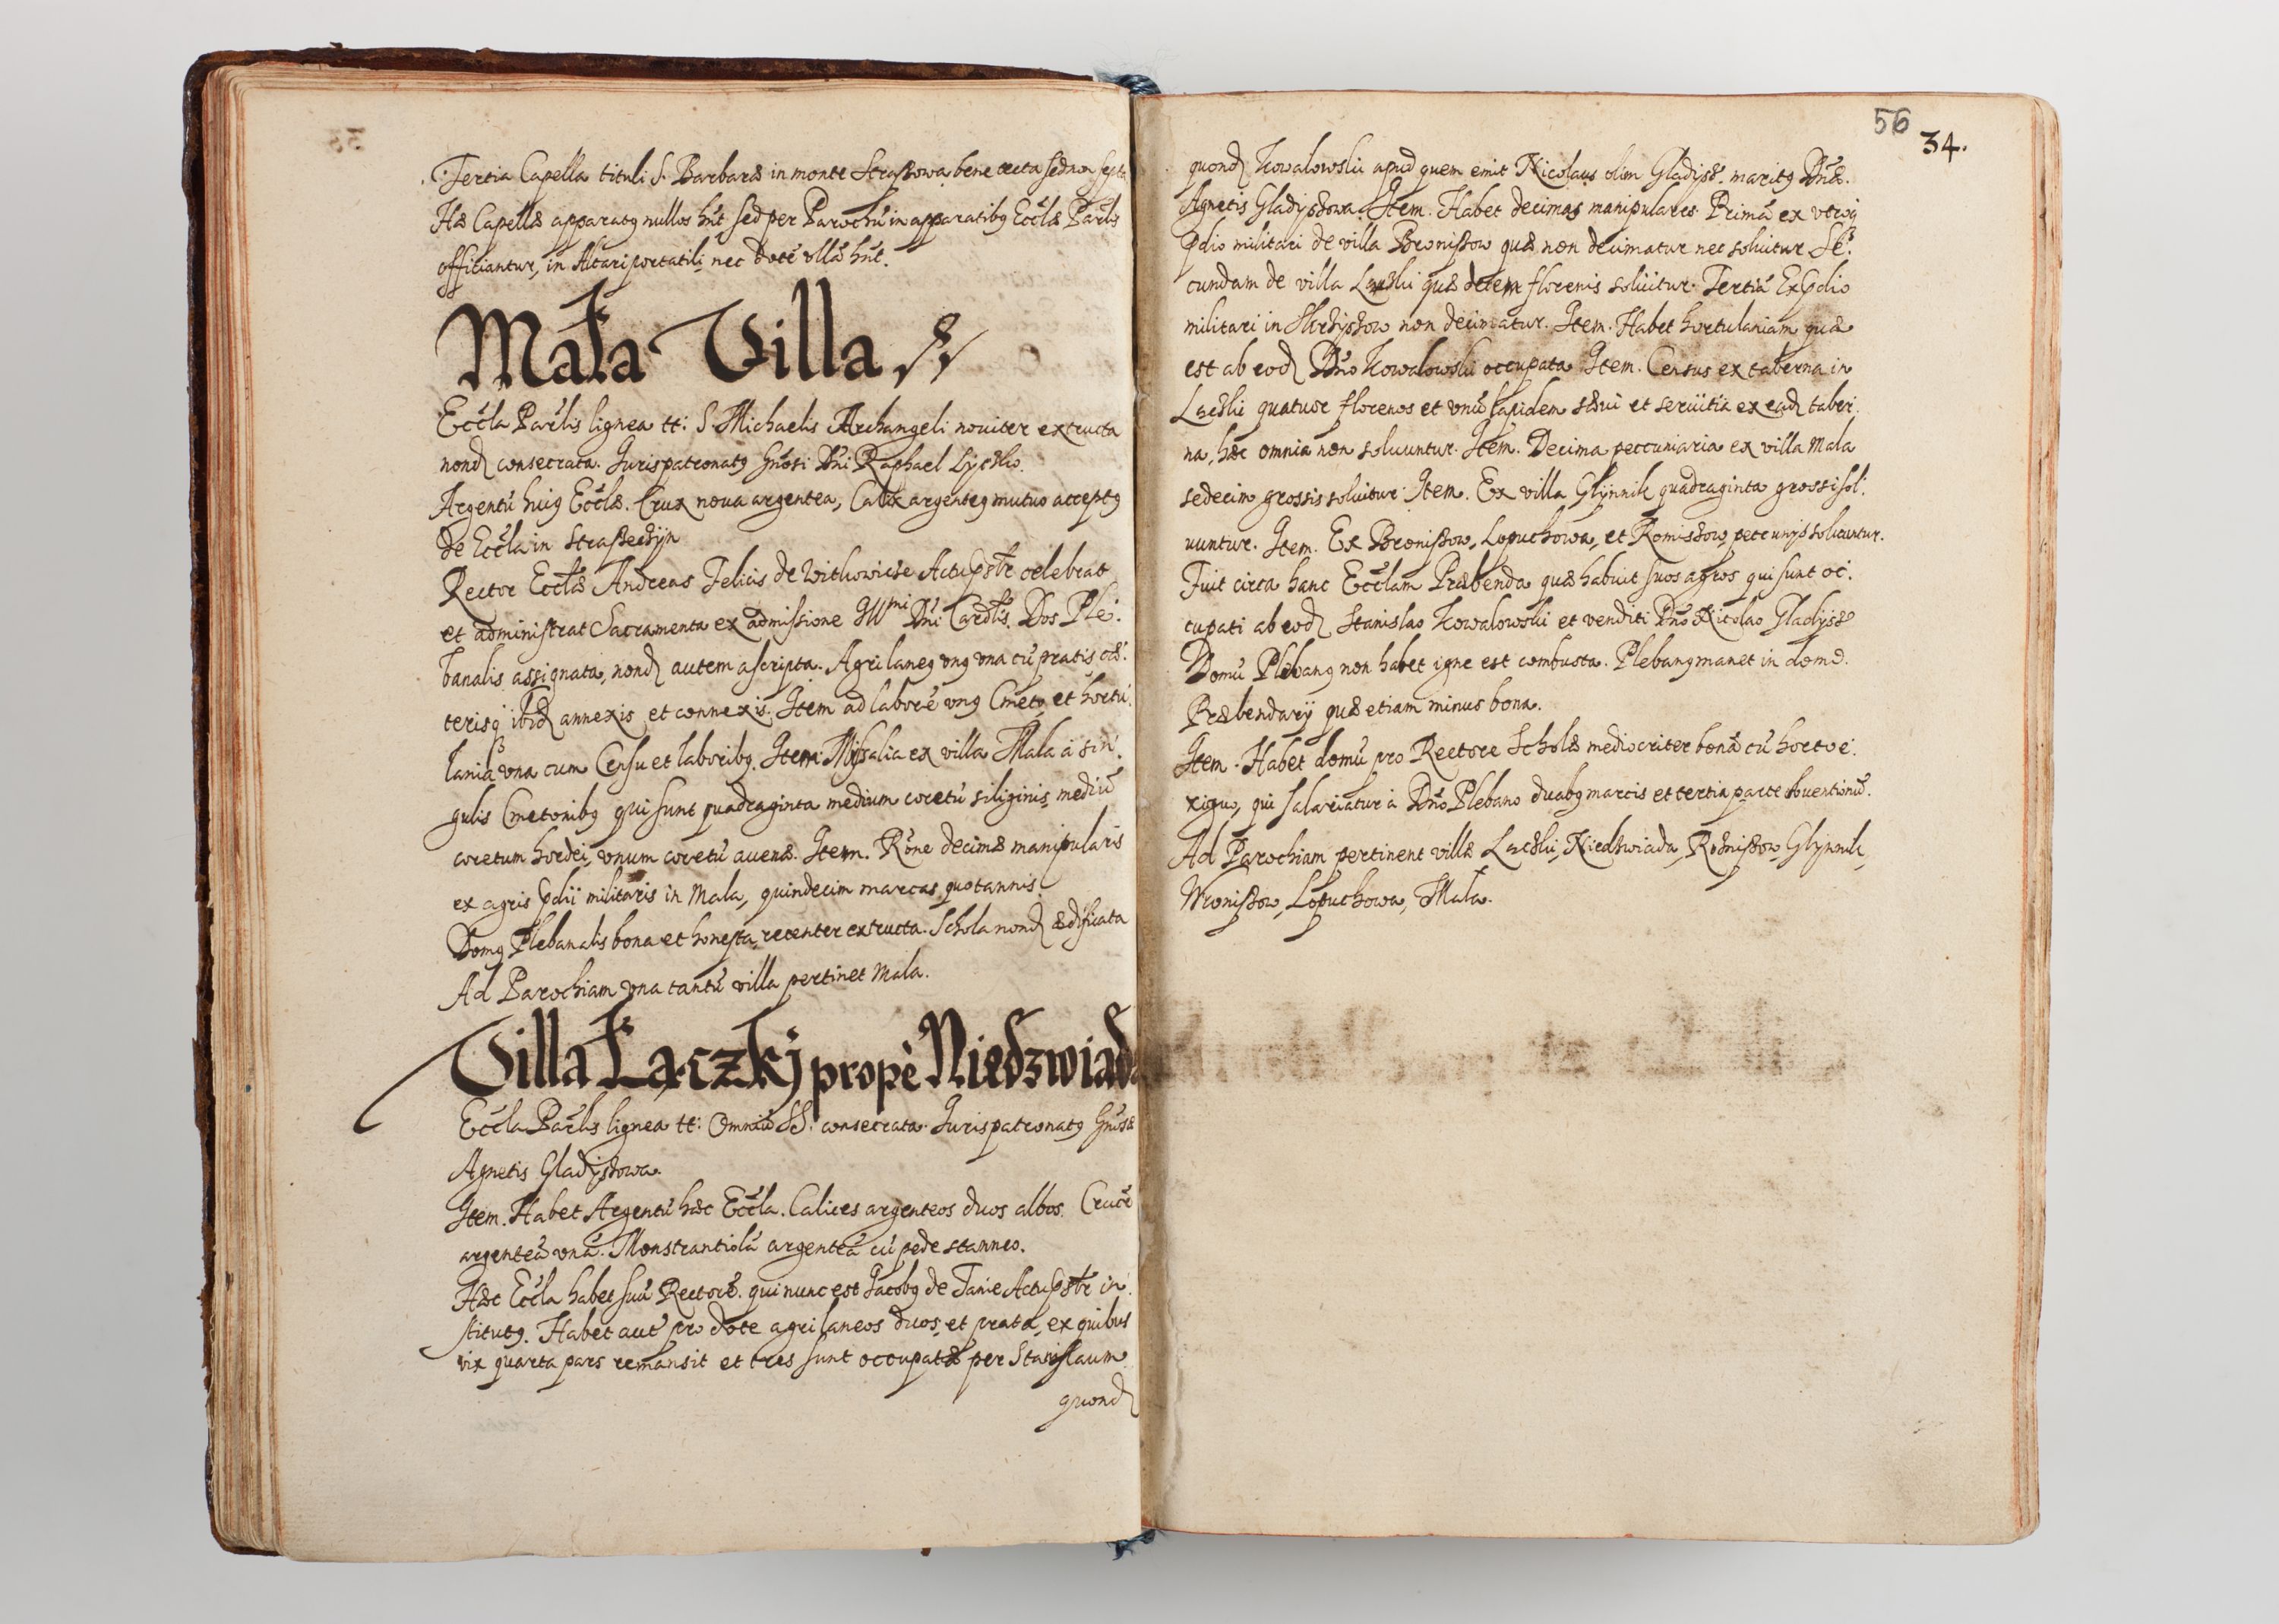 Tertia Capella tituli S. Barbaræ in monte Straszowa bene tecta sed non septa
Hæ Capellæ apparatꝰ nullos hn̄t sed per Parochū in apparatibꝰ Eccłæ Parłis
officiantur, in Altari portatili nec dotē ullā hn̄t.
Mała Villa
Eccła Parłis lignea tt: S. Michaelis Archangeli noviter extructa
nond consecrata. Jurispatronatꝰ Gn̄osi Dn̄i Raphael Lyczko.
Argentū huiꝰ Eccłæ. Crux noua argentea, Calix argenteꝰ mutuo acceptꝰ
de Eccła in Strasseczÿn
Rector Eccłæ Andreas Felicis de Witkowicze Actu pb̄r celebrat
et administrat Sacramenta ex admissione Illmi Dn̄i Cardłis. Dos Ple:
banalis assignata, nond autem ascripta. Agri laneꝰ vnꝰ vna cū pratis cæ:
terisq ibid annexis et connexis. Item ad laborē vnꝰ Cmeto et hortu:
laniā vna cum Censu et laboribꝰ. Item Missalia ex villa Mała à sin:
gulis Cmetonibꝰ qui sunt quadraginta medium coretū siliginis, mediū
coretum hordei, vnum coretū auenæ. Item. Rōne decimæ manipularis
ex agris pdii militaris in Mala, quindecim marcas quotannis.
Domꝰ Plebanalis bona et honesta, recenter extructa. Schola nond ædificata
Ad Parochiam vna tantū villa pertinet Mala.
Villa Łączkj propè Niedzwiada
Eccła Parłis lignea tt: Omniū SS. consecrata. Jurispatronatꝰ Gn̄osæ
Agnetis Gladÿszowa.
Item. Habet Argentū hæc Eccła. Calices argenteos duos albos. Crucē
argenteā vnā. Monstrantiolā argenteā cū pede stanneo.
Hæc Eccła habet suū Rectorē. qui nunc est Jacobꝰ de Janie Actu pb̄r in:
stitutꝰ. Habet aut pro dote agri laneos duos, et prata, ex quibus
vix quarta pars remansit et tres sunt occupatæ per Stanislaum
quond
56
34.
quond Kowalowski apud quem emit Nicolaus olim Gladÿsz. maritꝰ Dn̄æ.
Agnetis Gladÿszowa. Item. Habet decimas manipulares. Primā ex vtroq
pdio militari de villa Bronissow quæ non decimatur nec soluitur Se:
cundam de villa Laczki quæ decem florenis soluitur. Tertiā Ex pdio
militari in non decimatur. Item. Habet hortulaniam quæ
est ab eod Dn̄o Kowalowski occupata Item. Census ex taberna in
Laczki quatuor florenos et vnū lapidem sæui et seruitia ex ead taber:
na, hæc omnia non soluuntur. Item. Decima peccuniaria ex villa Mala
sedecim grossis soluitur. Item. Ex villa Glÿnnik quadraginta grossi sol:
uuntur. Item. Ex Bronissow, Lopuchowa, et Romiszow, peccunÿs soluuntur.
Fuit circa hanc Ecclam Præbenda quæ habuit suos agros qui sunt oc:
cupati ab eod Stanislao Kowalowski et venditi Dn̄o Nicolao Gladÿsz
Domū Plebanꝰ non habet igne est combusta. Plebanꝰ manet in domo
Præbendarÿ quæ etiam minus bona.
Item. Habet domū pro Rectore Scholæ mediocriter bonā cū horto e:
xiguo, qui salariatur à Dn̄o Plebano duabꝰ marcis et tertia parte obuentionū.
Ad Parochiam pertinent villæ Laczki, Niedzwiada, Rosnissow, Glÿnnik,
Wronissow, Lopuchowa, Mała.